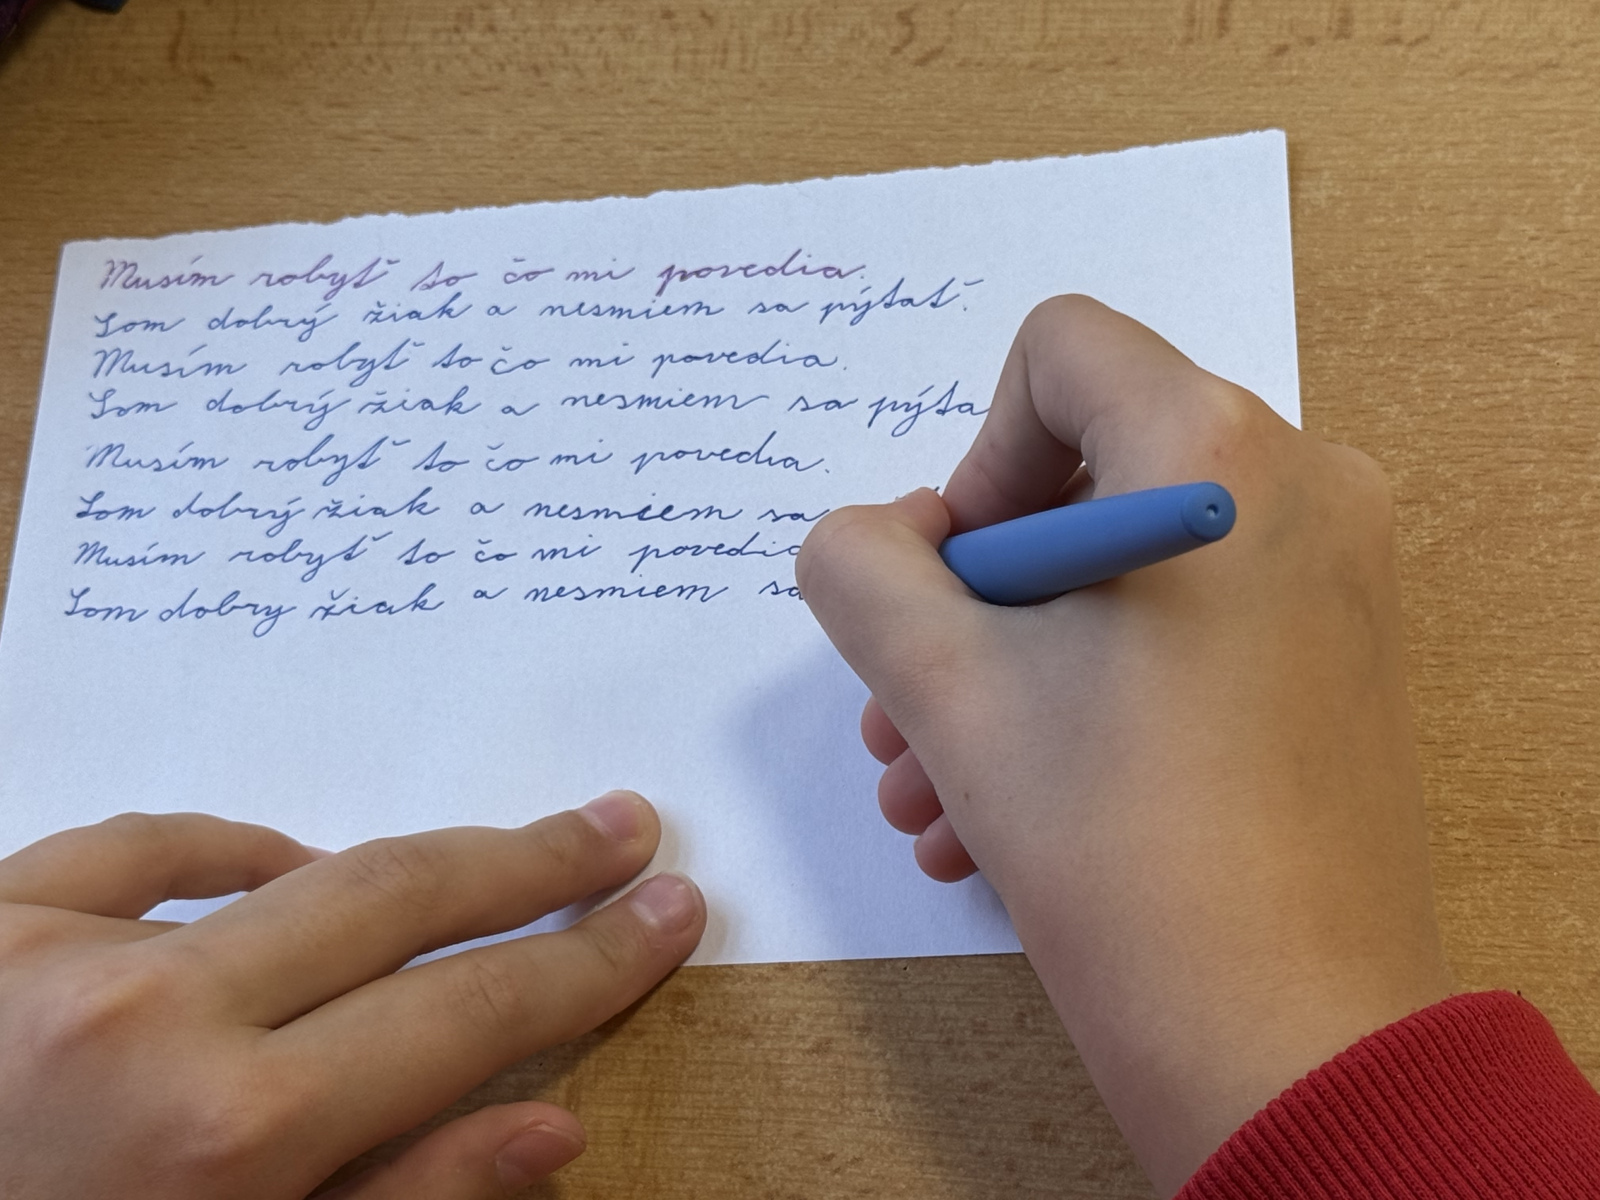 Musím robyť to čo mi povedia.
Som dobrý žiak a nesmiem sa pýtať.
Musím robyť to čo mi povedia.
Som dobrý žiak a nesmiem sa pýta
Musím robyť to čo mi povedia.
Som dobrý žiak a nesmiem sa
Musím robyť to čo mi povedia
Som dobry žiak a nesmiem sa